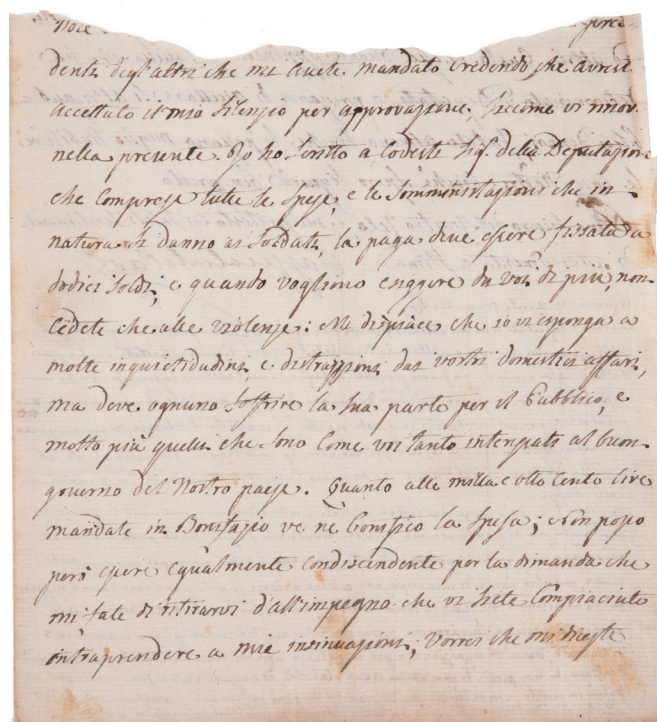 Noce prece
denti degl'altri che mi avete mandato credendo che avrei
accettato il mio silenzio per approvazione, siccome vi rinov
nella presente. Io ho scritto a codesti Sig.ri della Deputazione
che comprese tutte le spese, e le somministrazioni che in
natura si danno ai soldati, la paga deve essere fissata a
dodici soldi, e quando vogliono esiggere da voi di più, non
cedete che alle violenze: Mi dispiace che io vi esponga a
molte inquietidudini, e distrazzioni dai vostri domestici affari,
ma deve ognuno soffrire la sua parte per il Pubblico, e
molto più quelli che sono come voi tanto interessati al buon
governo del Nostro paese. Quanto alle milla e otto cento lire
mandate in Bonifazio ve ne bonifico la spesa; Non posso
però essere egualmente condiscendente per la dimanda che
mi fate di ritirarvi d'all'impegno che vi siete compiaciuto
intraprendere a mie insinuazioni; Vorrei che mi dieste